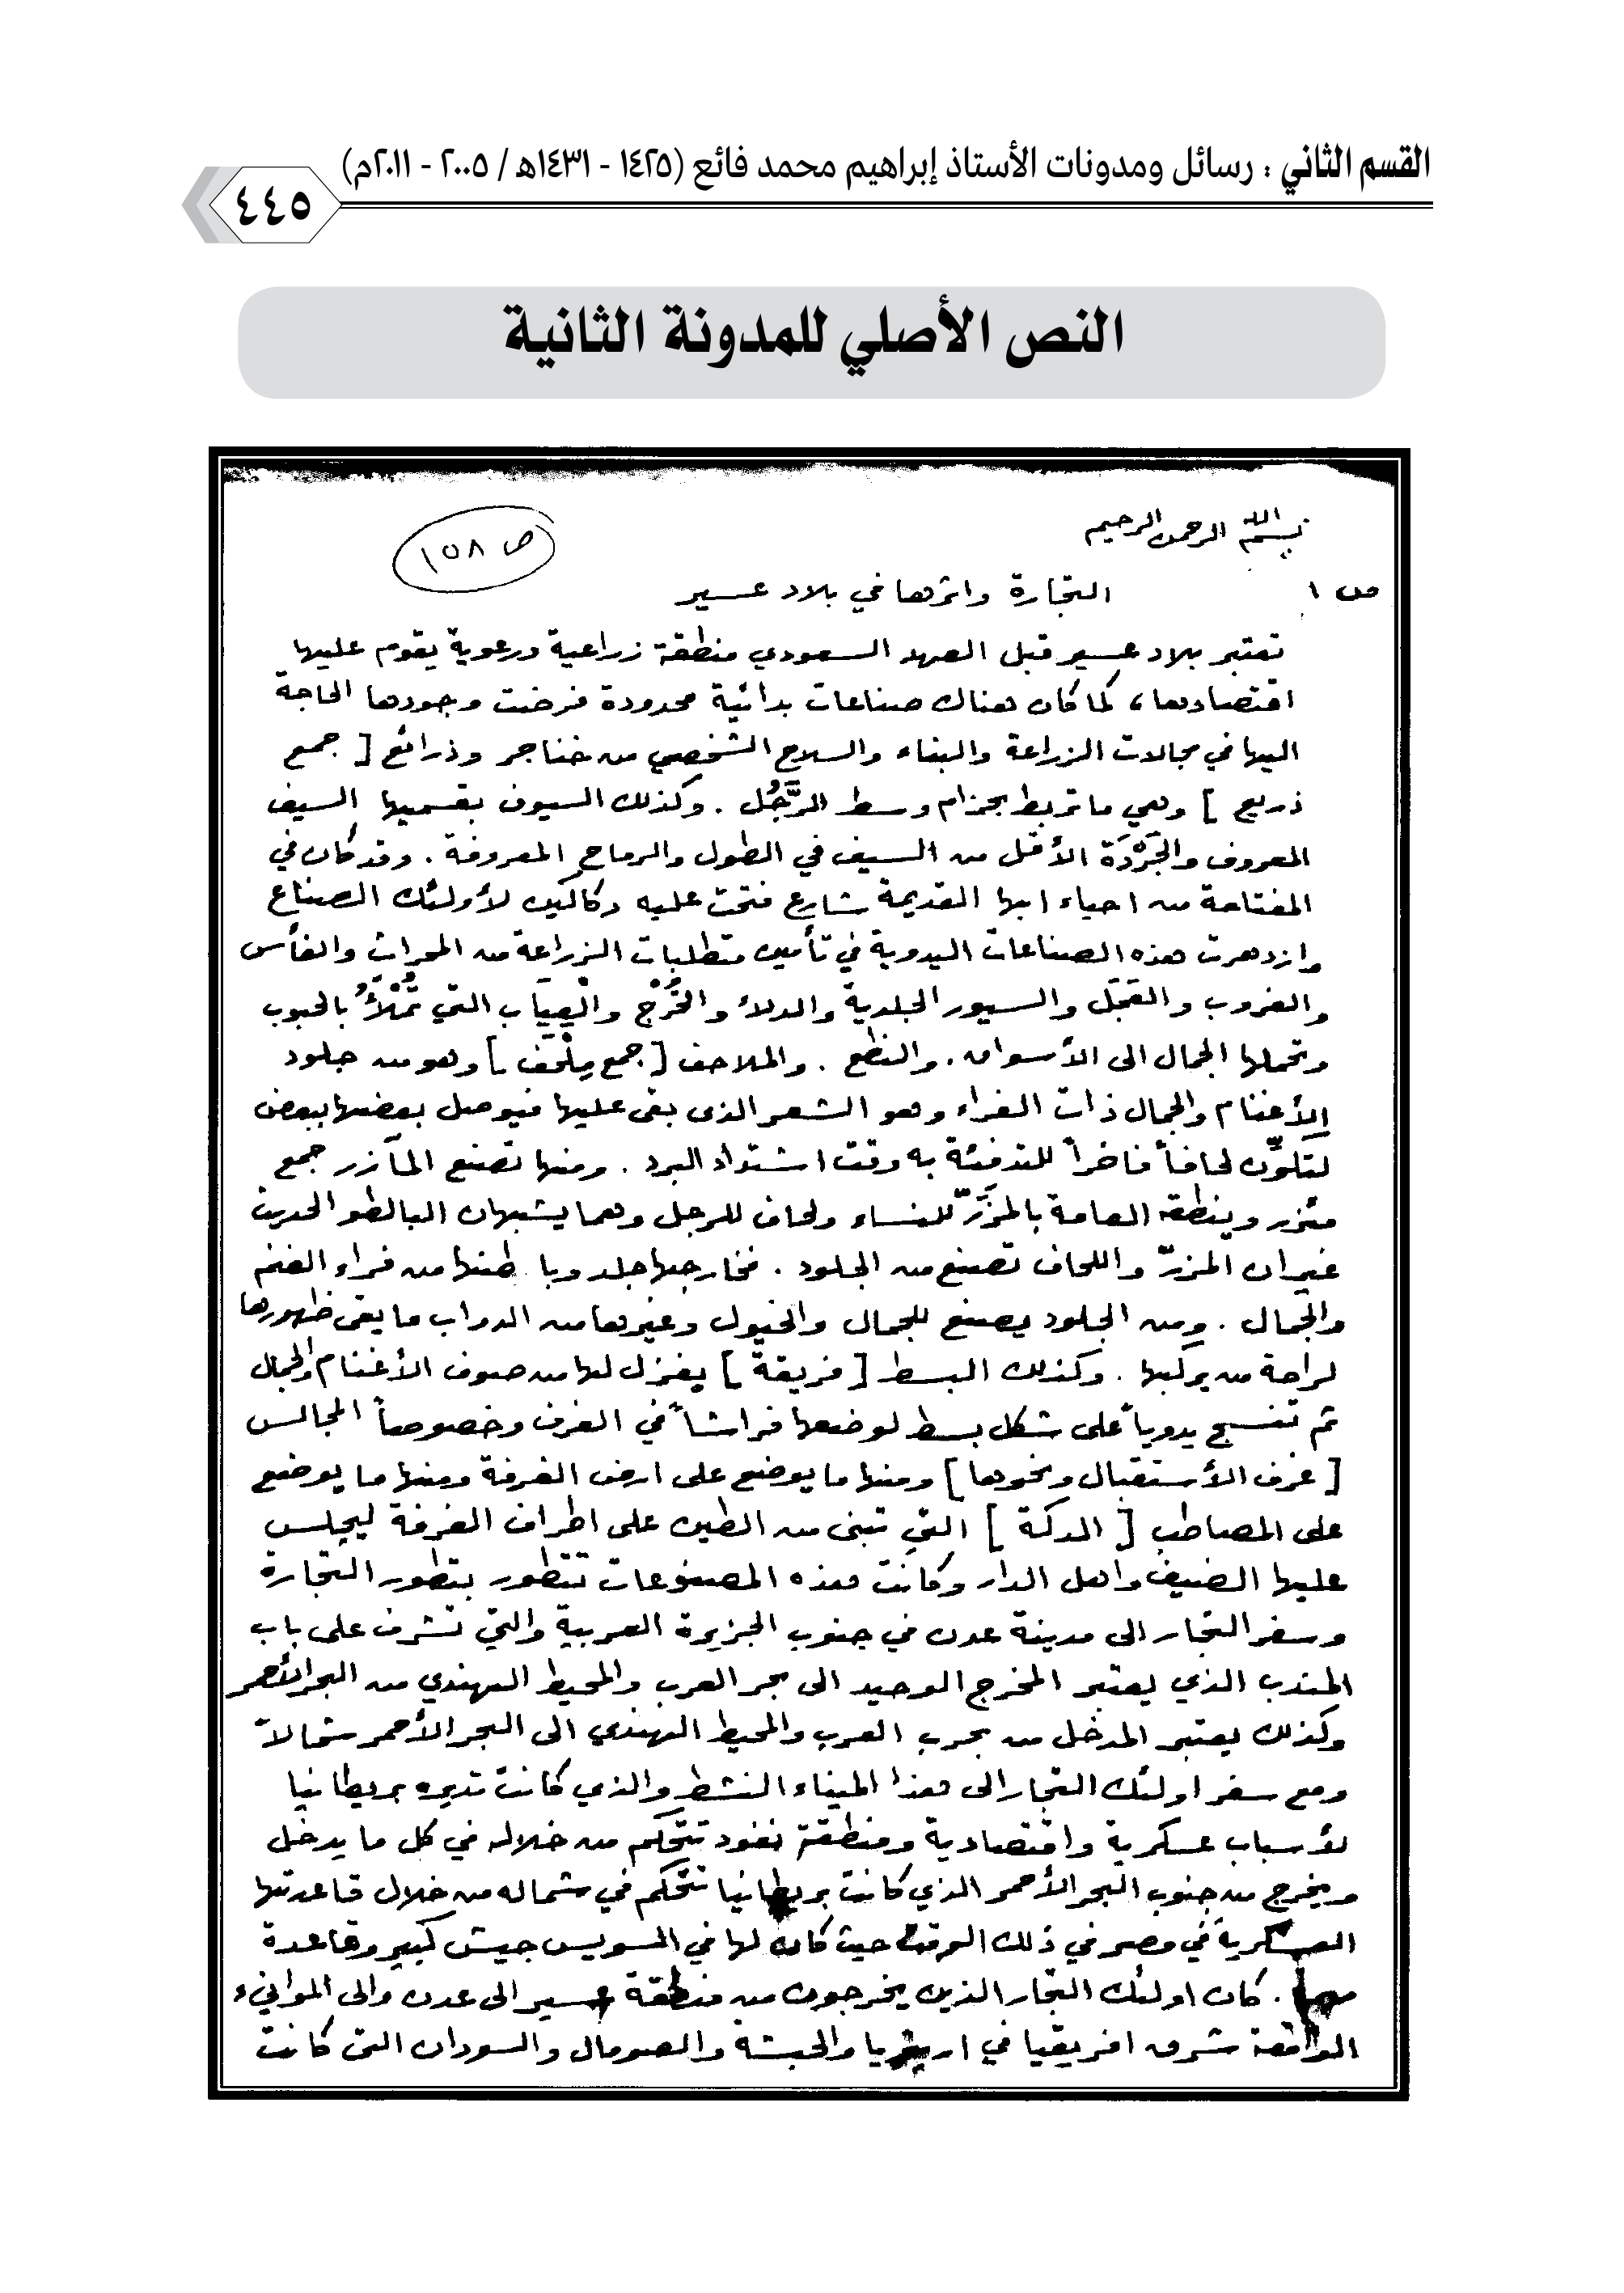 القسم الثاني : رسائل ومدونات الأستاذ إبراهيم محمد فائع (١٤٢٥ - ١٤٣١هـ / ٢٠٠٥ - ٢٠١١م)
٤٤٥
النص الأصلي للمدونة الثانية
بسم الله الرحمن الرحيم
ص ١٥٨
ص ١
التجارة واثرها في بلاد عسير
تعتبر بلاد عسير قبل العهد السعودي منطقة زراعية ورعوية يقوم عليها
اقتصادها، كما كان هناك صناعات بدائية محدودة فرضت وجودها الحاجة
اليها في مجالات الزراعة والبناء والسلاح الشخصي من خناجر وذرائع [ جمع
ذريع ] وهي ما تربط بحزام وسط الرَّجُل . وكذلك السيوف بقسميها السيف
المعروف والجَرْدَة الأقل من السيف في الطول والرماح المعروفة . وقد كان في
المفتاحة من احياء ابها القديمة شارع فتحت عليه دكاكين لأولئك الصناع
وازدهرت هذه الصناعات اليدوية في تأمين متطلبات الزراعة من المحراث والفأس
والغروب والعَجَل والسيور الجلدية والدلاء والخُرْج والعِيَاب التي تُمْلأُ بالحبوب
وتحملها الجمال الى الأسواق . والنطع . والملاحف [ جمع مِلْحف ] وهو من جلود
الأغنام والجمال ذات الفراء وهو الشعر الذى بقى عليها فيوصل بعضها ببعض
لتكوِّن لحافاً فاخراً للتدفئة به وقت اشتداد البرد . ومنها تصنع المآزر جمع
مئزر وينطقه العامة بالمزَرّ للنساء ولحاف للرجل وهما يشبهان البالطو الحديث
غير ان المزرّ واللحاف تصنع من الجلود . فخارجها جلد وبا طنها من فراء الغنم
والجمال . ومن الجلود يصنع للجمال والخيول وغيرها من الدواب ما يقى ظهورها
لراحة من يركبها . وكذلك البسط [ فريقة ] يغزل لها من صوف الأغنام والجمال
ثم تنسج يدوياً على شكل بسط لوضعها فراشاً في الغرف وخصوصاً المجالس
[ غرف الأستقبال ونحوها ] ومنها ما يوضع على ارض الغرفة ومنها ما يوضع
على المصاطب [ الدكة ] التي تبنى من الطين على اطراف الغرفة ليجلس
عليها الضيف واهل الدار وكانت هذه المصنوعات تتطور بتطور التجارة
وسفر التجار الى مدينة عدن في جنوب الجزيرة العربية والتي تشرف على باب
المندب الذي يعتبر المخرج الوحيد الى بحر العرب والمحيط الهندي من البحر الأحمر
وكذلك يعتبر المدخل من بحر العرب والمحيط الهندي الى البحر الأحمر شمالاً
ومع سفر اولئك التجار الى هذا الميناء النشط والذي كانت تديره بريطانيا
لأسباب عسكرية واقتصادية ومنطقة نفوذ تتحكم من خلاله في كل ما يدخل
ويخرج من جنوب البحر الأحمر الذي كانت بريطانيا تتحكم في شماله من خلال قاعدتها
العسكرية في مصر في ذلك الوقت حيث كان لها في السويس جيش كبير وقاعدة
. كان اولئك التجار الذين يخرجون من منطقة عسير الى عدن والى الموانيء
الواقعة شرق افريقيا في اريتريا والحبشة والصومال والسودان التى كانت